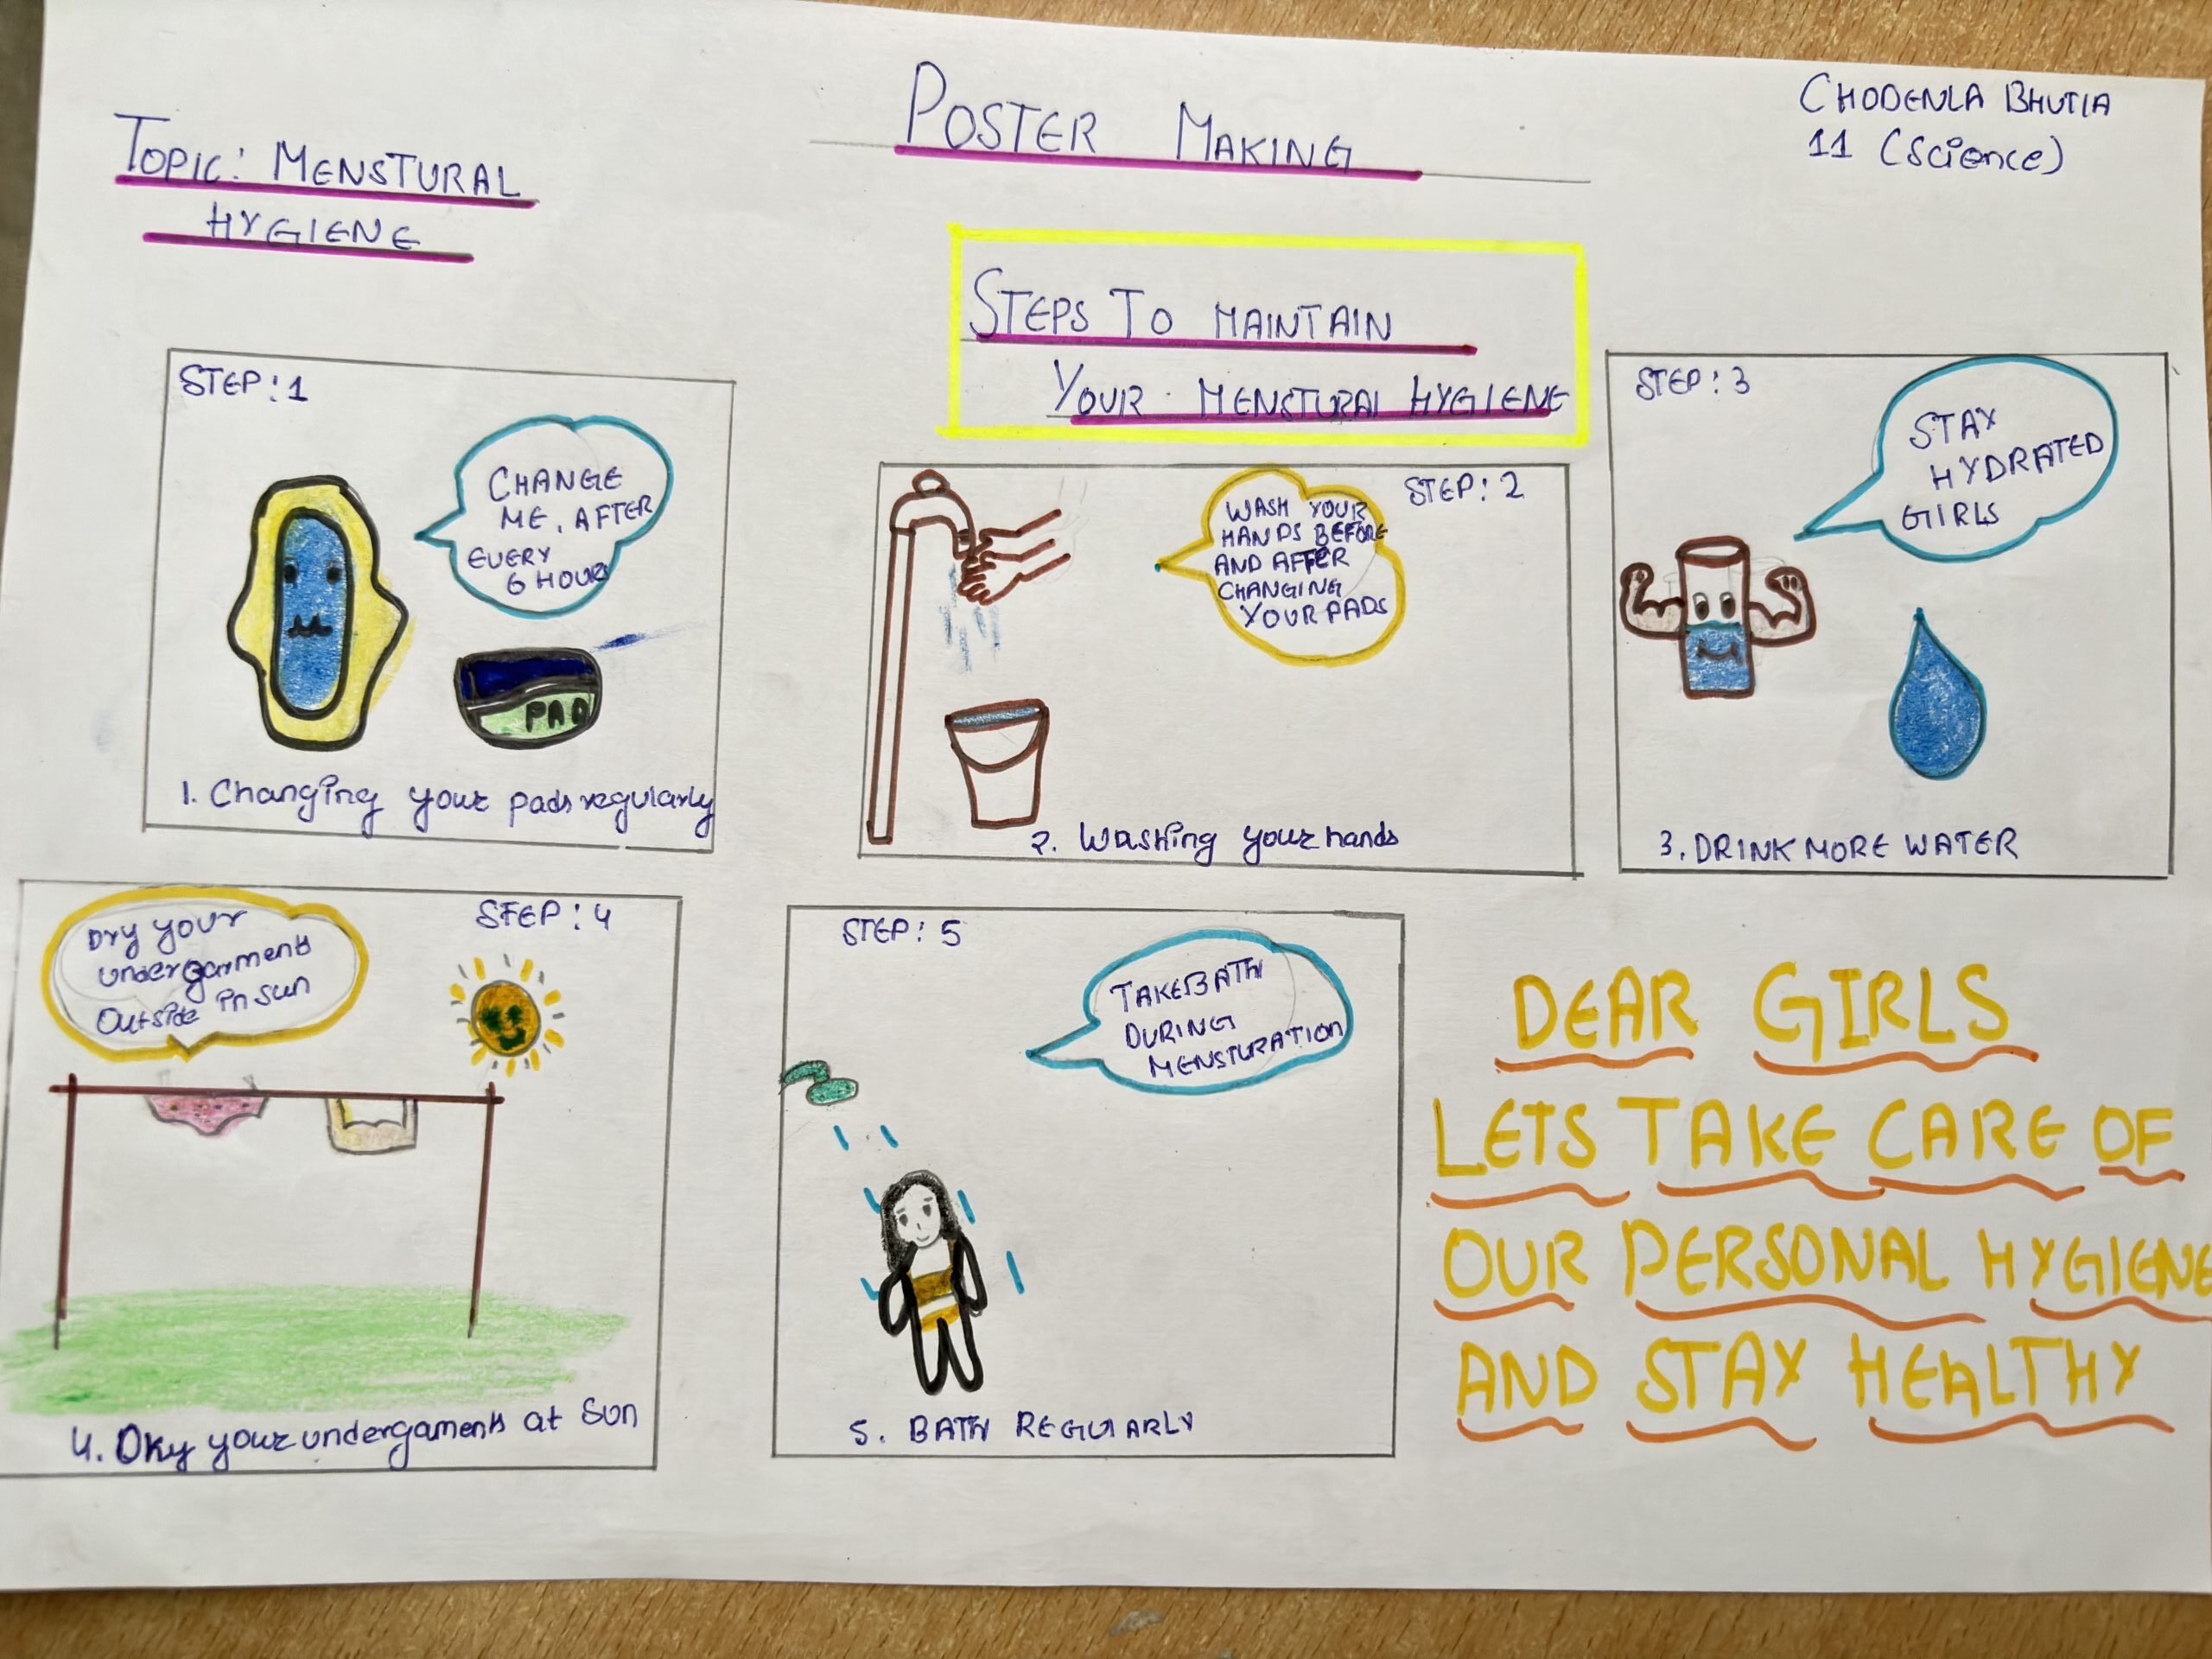 POSTER MAKING
CHODENLA BHUTIA
11 (Science)
TOPIC: MENSTURAL
HYGIENE
STEPS TO MAINTAIN
YOUR MENSTURAL HYGIENE
STEP: 1
CHANGE
ME, AFTER
EVERY
6 HOURS
PAD
1. Changing your pads regularly
STEP: 2
WASH YOUR
HANDS BEFORE
AND AFTER
CHANGING
YOUR PADS
2. Washing your hands
STEP: 3
STAY
HYDRATED
GIRLS
3. DRINK MORE WATER
STEP: 4
Dry your
undergarments
Outside in sun
4. Dry your undergaments at Sun
STEP: 5
TAKE BATH
DURING
MENSTURATION
5. BATH REGULARLY
DEAR GIRLS
LETS TAKE CARE OF
OUR PERSONAL HYGIENE
AND STAY HEALTHY